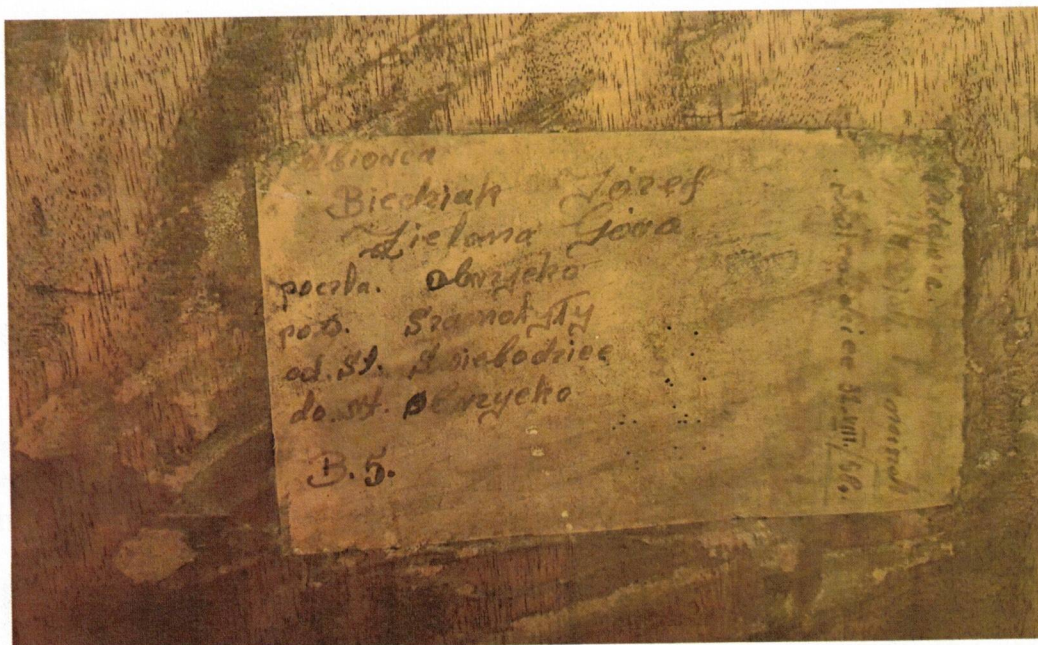 Odbiorca
Biedziak Józef
Zielona Góra
poczta. Obrzycko
pow. Szamotuły
od. st. Świebodzice
do. st. Obrzycko
B. 5.
Nadawca.
Świebodzice 31.VIII.